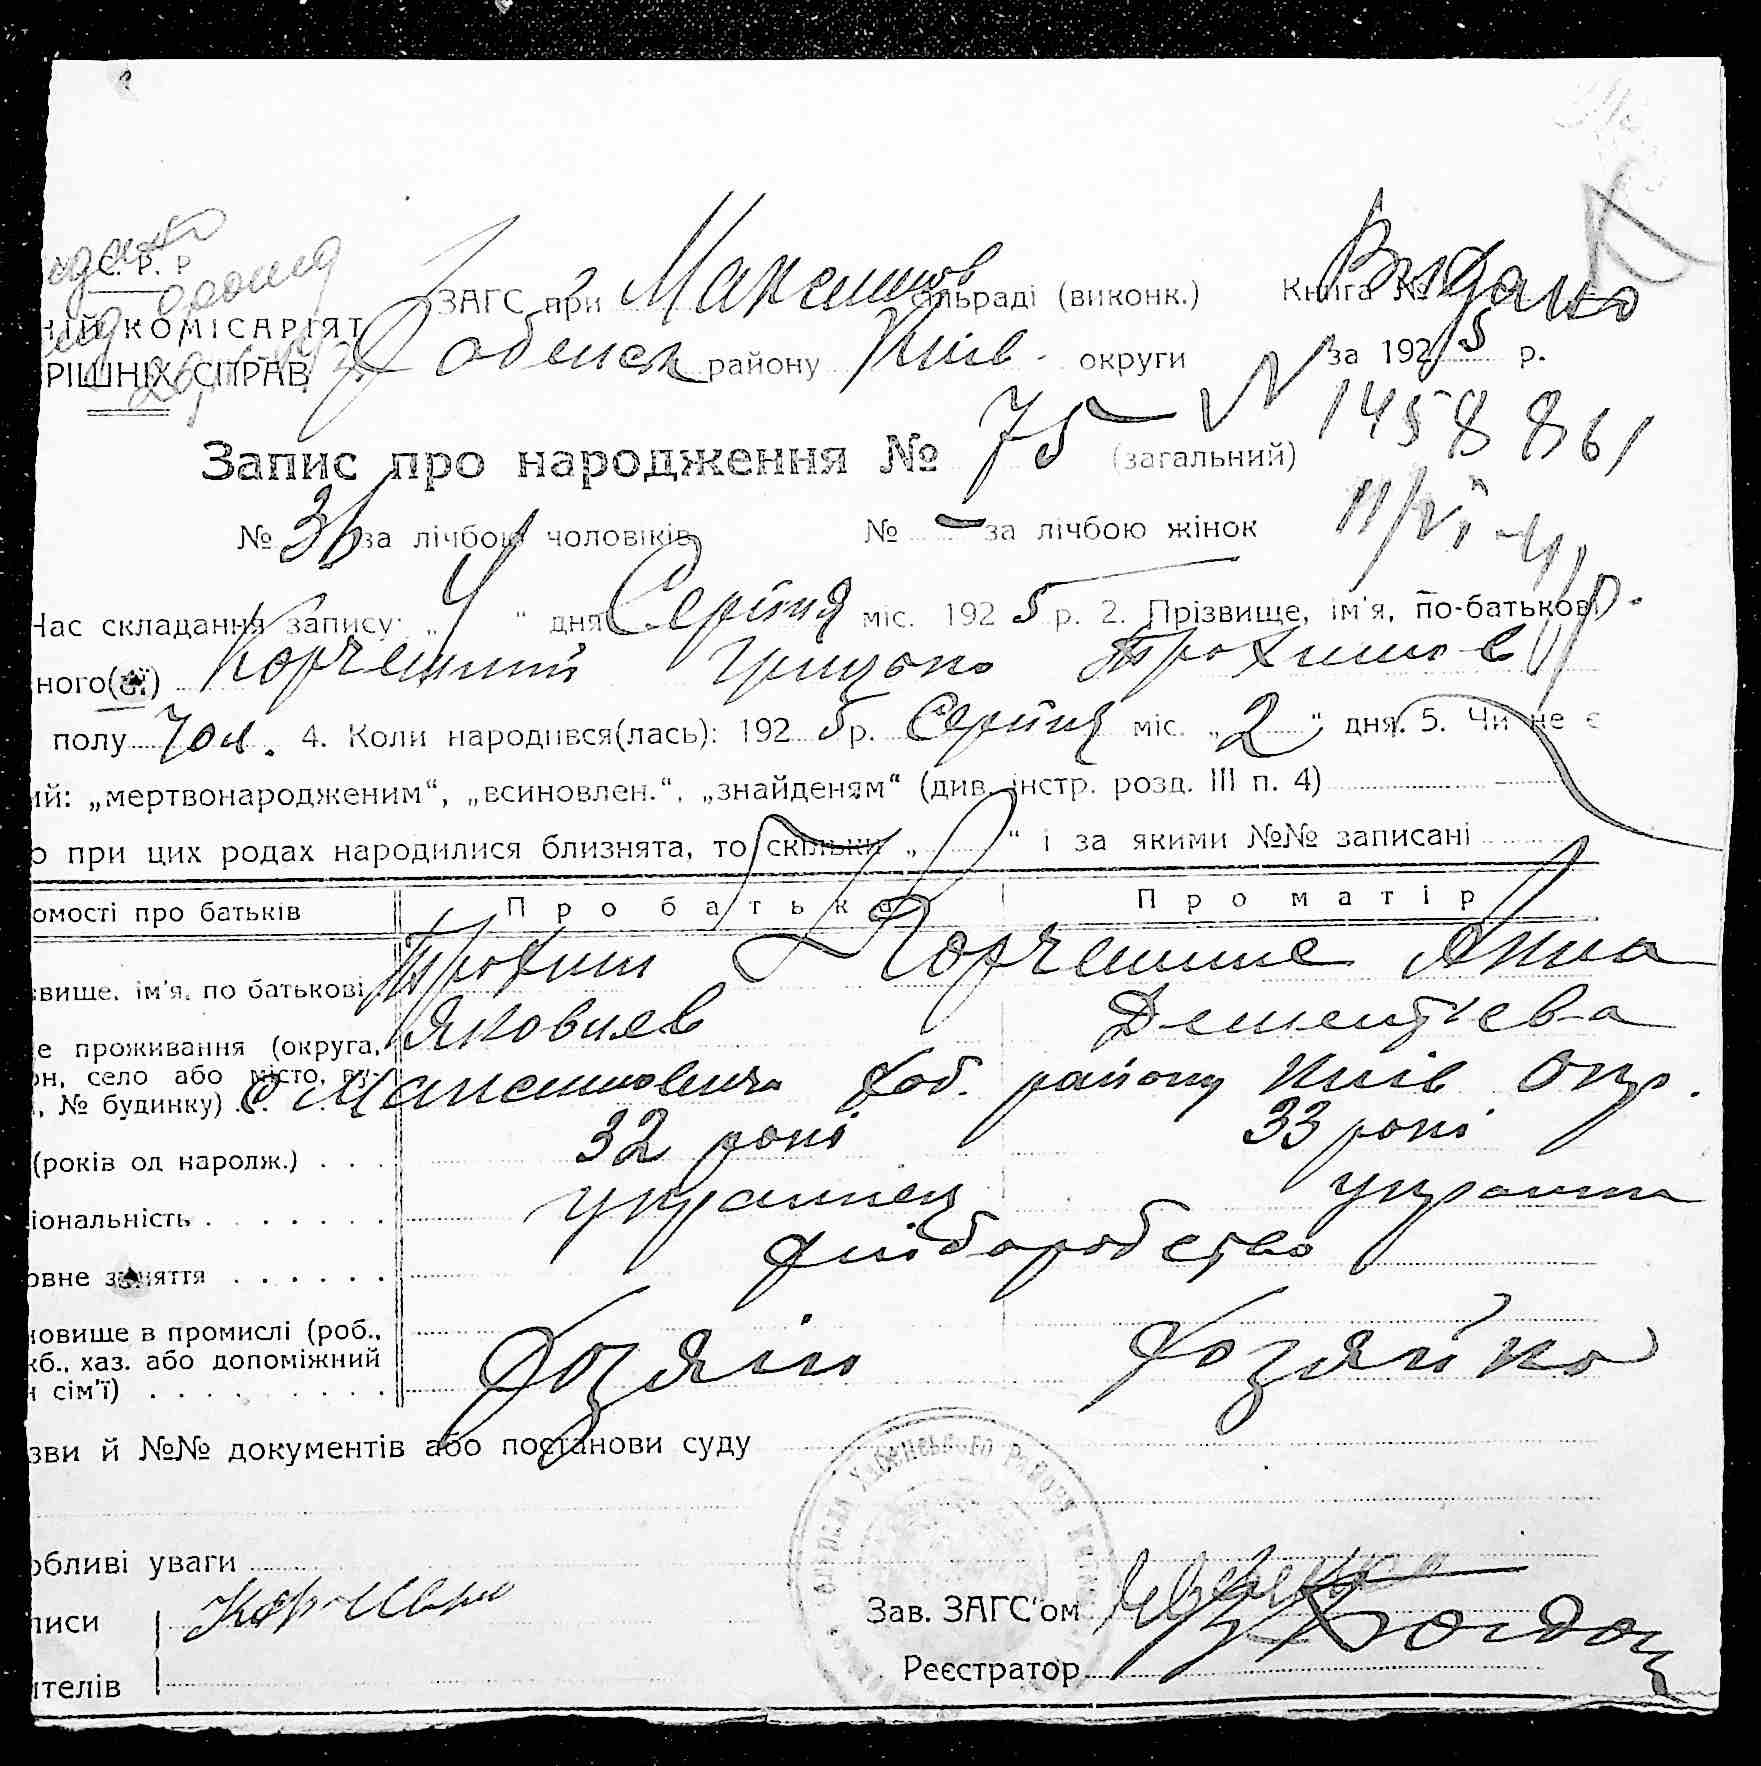 С. Р. Р
ЗАГС при Максимов сільраді (виконк.) Книга № Видано
НІЙ КОМІСАРІЯТ
РІШНІХ СПРАВ Хабенск району Київ. округи за 1925 р.
№ 1458861
Запис про народження № 75 (загальний)
№ 36 за лічбою чоловіків № – за лічбою жінок
Час складання запису: „4“ дня Серпня міс. 1925 р. 2. Прізвище, ім'я, по-батькові
ного(ої) Корчешний Грицько Трохимов
полу Чол. 4. Коли народився(лась): 1925 р. Серпня міс. „2“ дня. 5. Чи не є
ий: „мертвонародженим“, „всиновлен.“, „знайденям“ (див. інстр. розд. III п. 4)
о при цих родах народилися близнята, то скільки „ “ і за якими №№ записані
омості про батьків Про батька Про матір
Трохим Корчешние Анна
звище, ім'я, по батькові
Яковлев Дементієва
е проживання (округа,
он, село або місто, ву-
, № будинку) с. Максимовичи Хаб. району Київ Окр.
32 років 33 роки
(років од народж.)
украинец украинка
іональність
хліборобство
овне заняття
новище в промислі (роб.,
жб., хаз. або допоміжний
н сім'ї) Хозяін Хозяйка
зви й №№ документів або постанови суду
Хабенського Району
обливі уваги
писи
Зав. ЗАГС'ом
Реєстратор
ителів